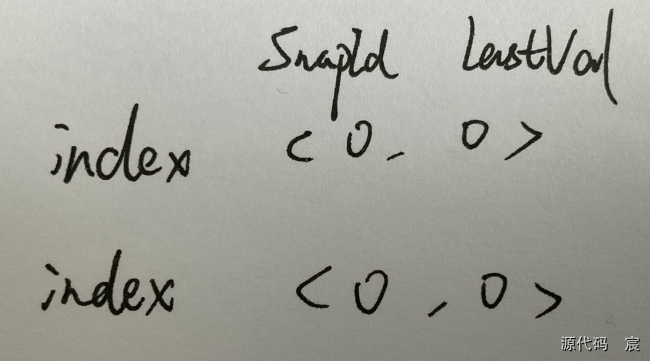 SnapId LastVal
index <0, 0>
index <0, 0>
源代码 宸